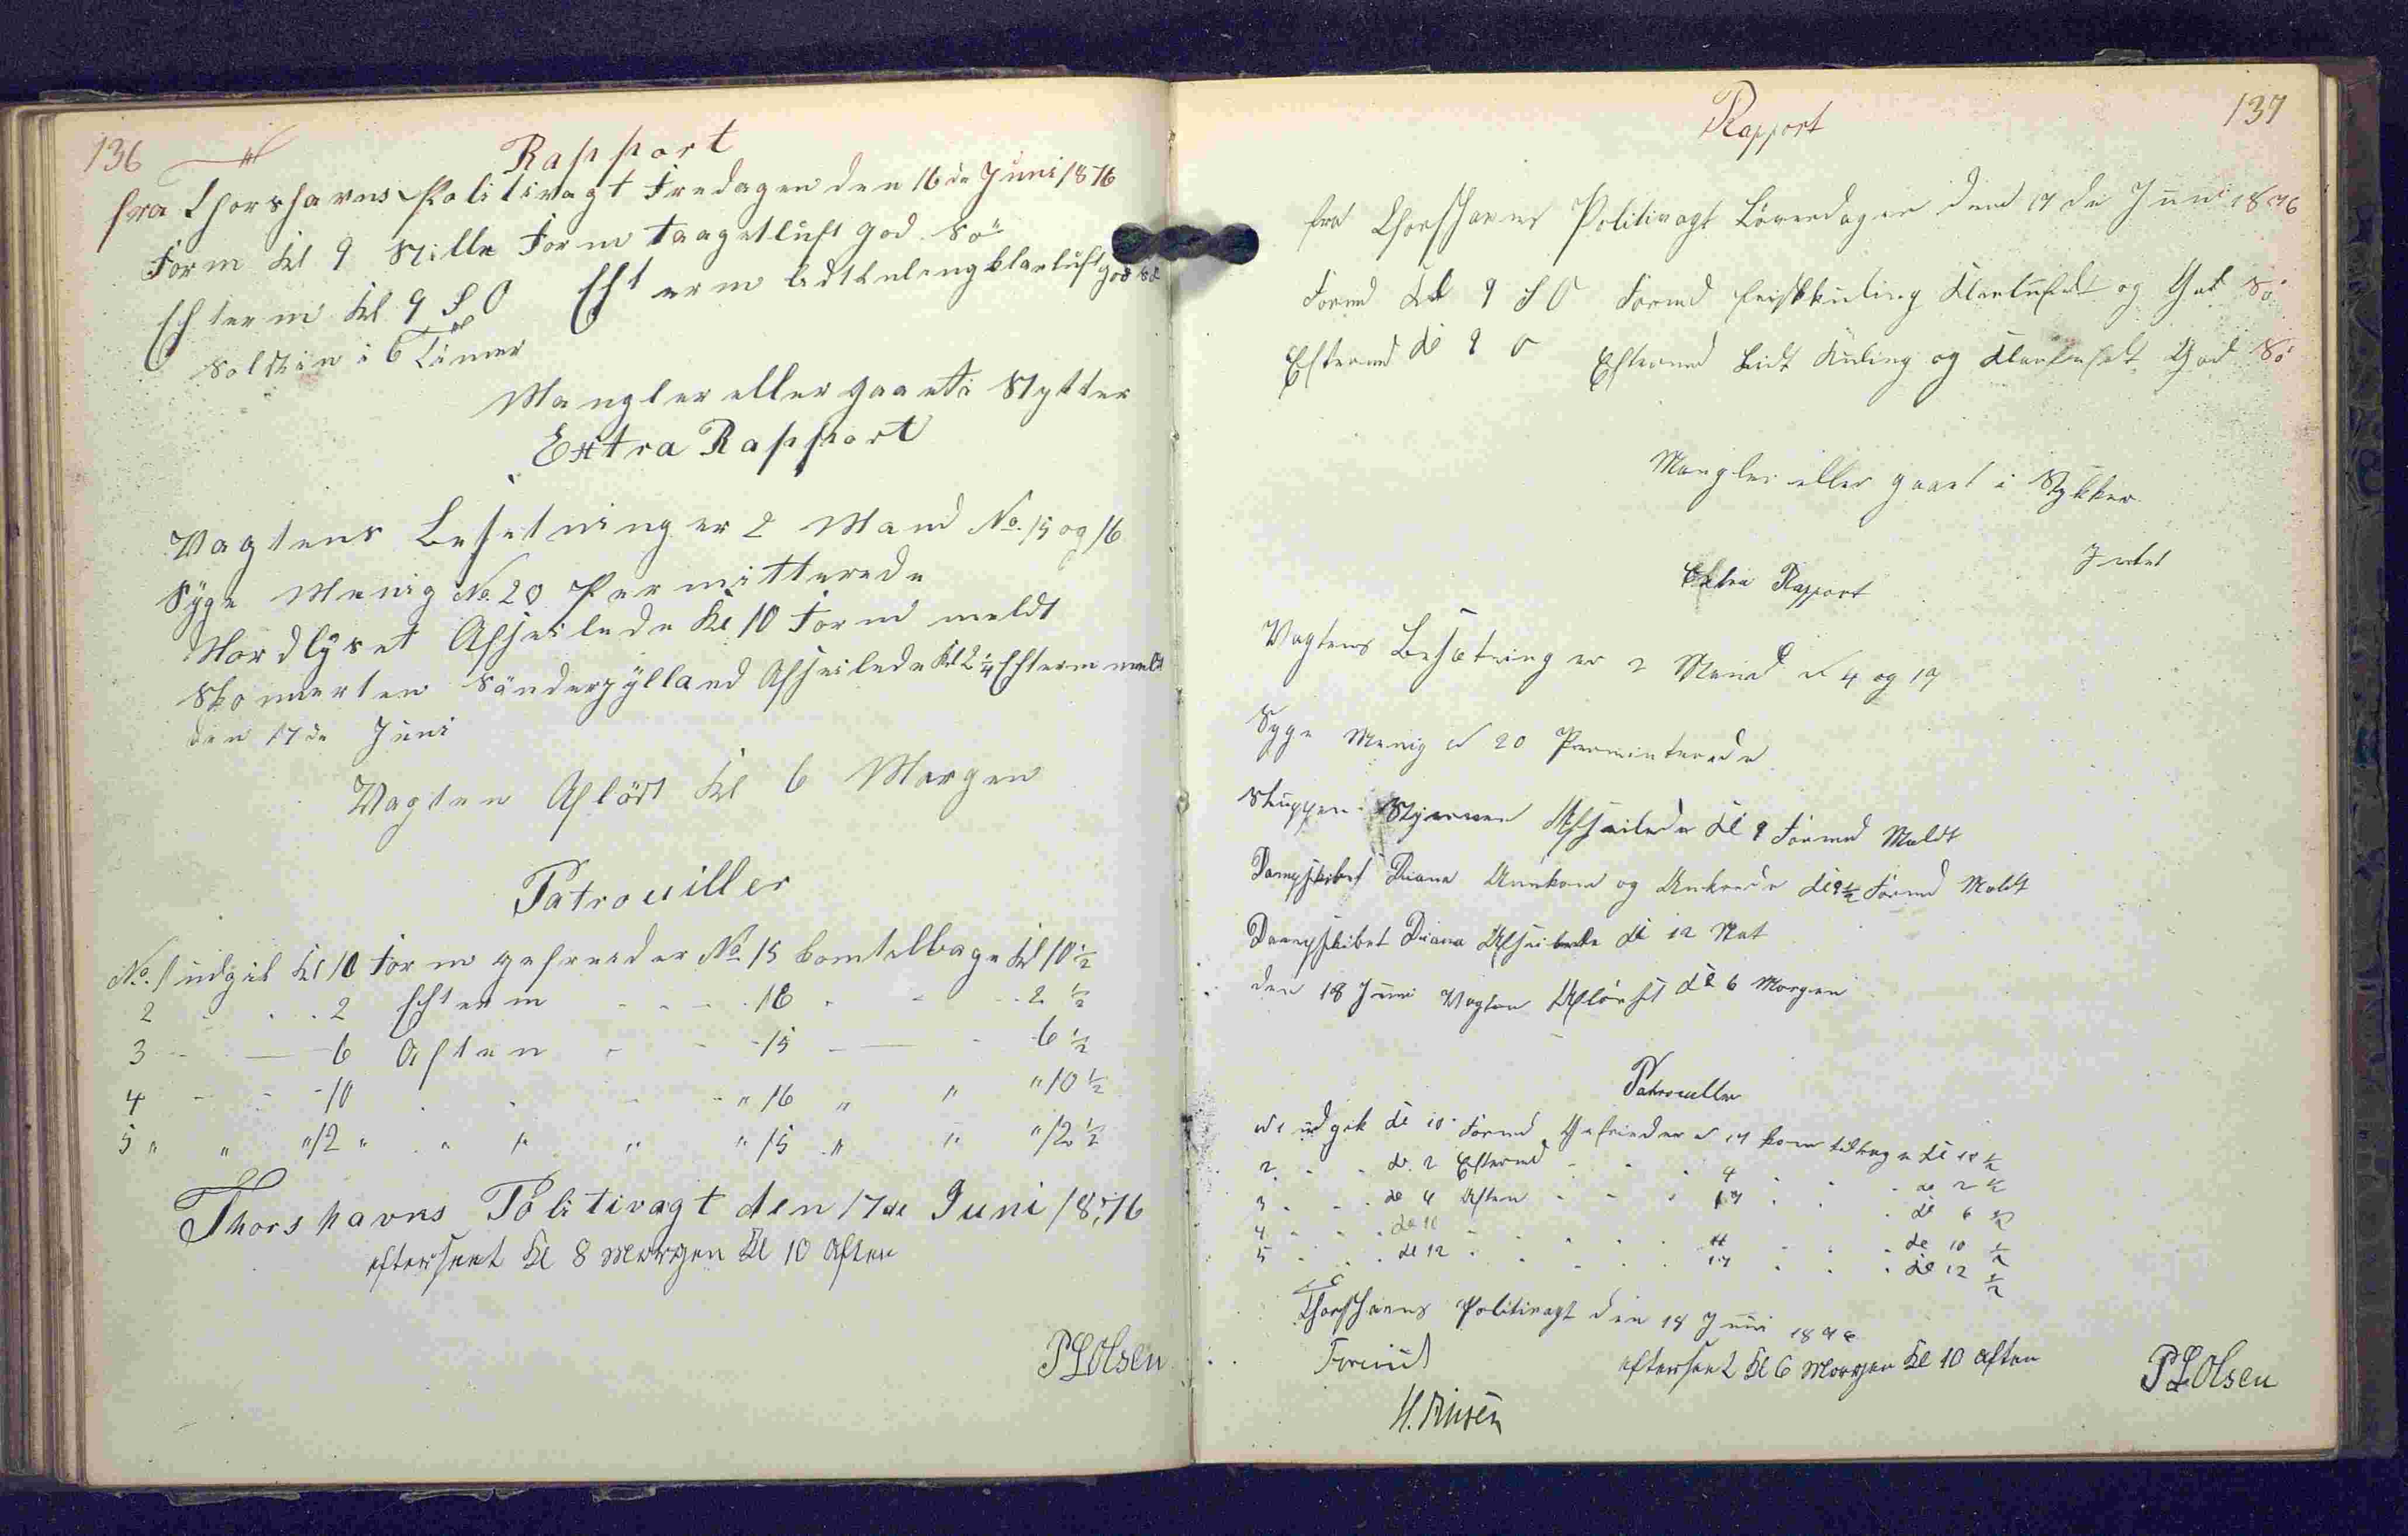 136
Rapport
fra Thorshavns Politivagt Fredagen den 16de Juni 1876
Form Kl 9 Stille Form taagetluft god Sö
Efterm Kl 9 SO Efterm lidtkulingklarluft god Sö
Soldtin i 6 Timer
Mangler eller gaaeti Stytter
Extra Rapport
Vagtens Besetning er 2 Mand No. 15 og 16
Syge Menig No. 20 Permitterede
Nordlyset Afseilede Kl 10 Form meldt
Skonnerten Sönderjylland Afseilede Kl 2 1/4 Efterm meldt
den 17de Juni
Vagten Aflöst Kl 6 Morgen
Patrouiller
No. 1 udgik Kl 10 Form gefreider No 15 komtelbage Kl 10 1/2
2 - - 2 Efterm - - - 16 - - - 2 1/2
3 - - 6 Aften - - - 15 - - - 6 1/2
4 - - - 10 - - - - " 16 " " " 10 1/2
5 " " " 12 " " " " " 15 " " " 12 1/2
Thorshavns Politivagt den 17de Juni 1876
efterseet Kl 8 Morgen Kl 10 Aften
PLOlsen
137
Rapport
fra Thorshavns Politivagt Löverdagen den 17de Juni 1876
Formd Kl 9 SO Formd friskkuling Klarluft og God Sö
Eftermd Kl 9 O Eftermd Lidt Kuling og Klarluft God Sö
Mangler eller gaaet i Stykker
Intet
Extra Rapport
Vagtens Besætning er 2 Mand N 4 og 17
Syge Menig N 20 Perminterede
Sluppen Stjernen Afseilede Kl 9 Formd Meldt
Dampskibet Diana Annkom og Ankrede Kl 9 1/2 Formd Meldt
Dampskibet Diana Afseilede Kl 12 Nat
den 18 Juni Vagten Aflöst Kl 6 Morgen
Patrouller
N 1 udgik Kl 10 Formd Gefreider N 17 kom tilbage Kl 10 1/2
2 - - Kl 2 Eftermd - - - 4 - - - Kl 2 1/2
3 - - Kl 6 Aften - - - 17 - - - Kl 6 1/2
4 - - - Kl 10 - - - - 4 - - - Kl 10 1/2
5 - - - Kl 12 - - - - 17 - - - Kl 12 1/2
Thorshavns Politivagt den 18 Juni 1876
efterseet Kl 6 Morgen Kl 10 Aften
PLOlsen